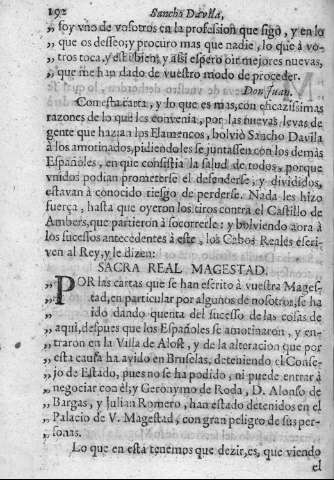 192 Sancho Davila,
„ soy vno de vosotros en la profession que sigo, y en lo
„ que os desseo, y procuro mas que nadie, lo que à vo-
„ tros toca, y està bien, y assi espero oir mejores nuevas,
„ que me han dado de vuestro modo de proceder.
Don Juan.
Con esta carta, y lo que es mas, con eficazissimas
razones de lo que les convenia, por las nuevas levas de
gente que hazian los Flamencos, bolviò Sancho Davila
à los amotinados, pidiendoles se juntassen con los demàs
Españoles, en que consistia la salud de todos, porque
vnidos podian prometerse el defenderse, y divididos,
estavan à conocido riesgo de perderse. Nada les hizo
fuerça, hasta que oyeron los tiros contra el Castillo de
Ambers, que partieron à socorrerle: y bolviendo aora à
los sucessos antecedentes à este, los Cabos Reales escri-
ven al Rey, y le dizen:
SACRA REAL MAGESTAD.
„ POR las cartas que se han escrito à vuestra Mages-
„ tad, en particular por algunos de nosotros, se ha
„ ido dando quenta del sucesso de las cosas de
„ aqui, despues que los Españoles se amotinaron, y en-
„ traron en la Villa de Alost, y de la alteracion que por
„ esta causa ha avido en Bruselas, deteniendo el Conse-
„ jo de Estado, pues no se ha podido, ni puede entrar à
„ negociar con èl; y Geronymo de Roda, D. Alonso de
„ Bargas, y Julian Romero, han estado detenidos en el
„ Palacio de V. Magestad, con gran peligro de sus per-
„ sonas.
„ Lo que en esta tenèmos que dezir, es, que viendo
el